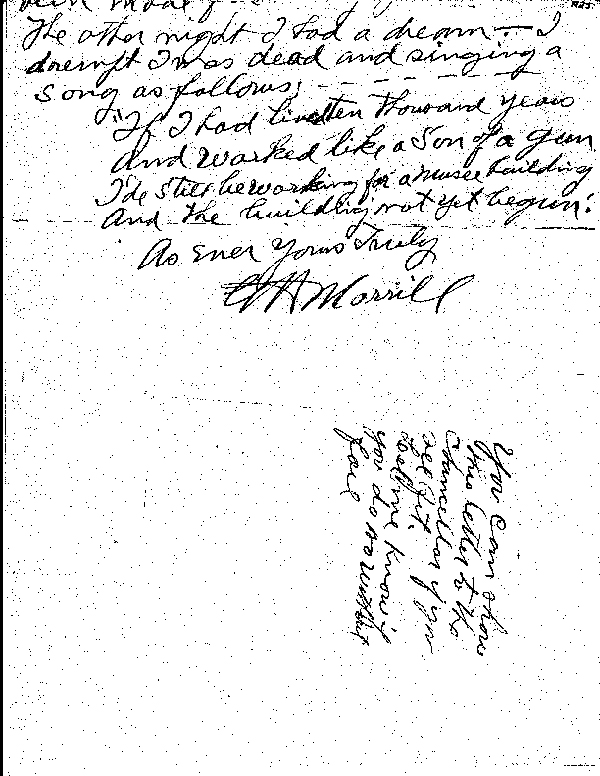 been made
The other night I had a dream — I
dreempt I was dead and singing a
Song as follows;
"If I had lived ten thousand years
And worked like a Son of a gun
I'de still be working for a musee building
And the building not yet begun.
As Ever Yours Truly
Morrill
You can show
this letter to the
Councillor if you
see fit.
Let me know if
you do